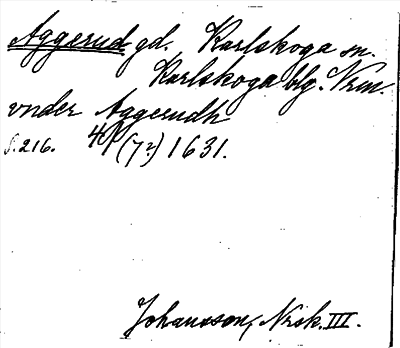 Aggerud, gd. Karlskoga sn.
Karlskoga blg. Vrm.
vnder Aggerudh
s. 216. 4/9 (7?) 1631.
Johansson, Nrsk. III.